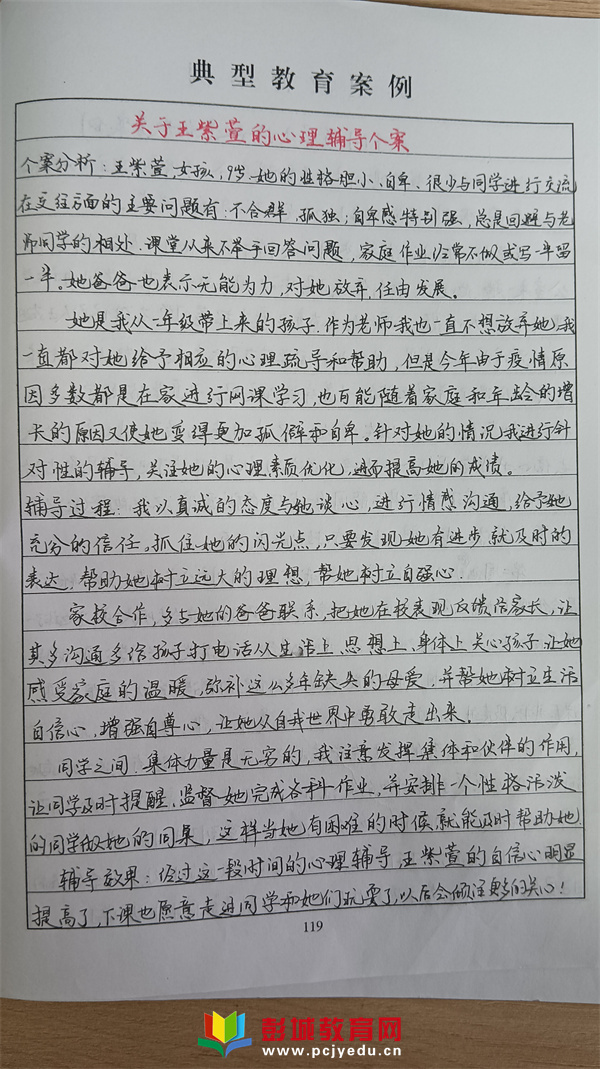 典型教育案例
关于王紫萱的心理辅导个案
个案分析:王紫萱,女孩,9岁.她的性格胆小、自卑、很少与同学进行交流
在交往方面的主要问题有:不合群,孤独;自卑感特别强,总是回避与老
师同学的相处.课堂从来不举手回答问题,家庭作业经常不做或写一半留
一半。她爸爸也表示无能为力,对她放弃.任由发展。
她是我从一年级带上来的孩子.作为老师我也一直不想放弃她,我
一直都对她给予相应的心理疏导和帮助,但是今年由于疫情原
因多数都是在家进行网课学习,也可能随着家庭和年龄的增
长的原因又使她变得更加孤僻和自卑。针对她的情况我进行针
对性的辅导,关注她的心理素质优化,进而提高她的成绩。
辅导过程:我以真诚的态度与她谈心,进行情感沟通,给予她
充分的信任。抓住她的闪光点,只要发现她有进步就及时的
表达.帮助她树立远大的理想,帮她树立自强心.
家校合作,多与她的爸爸联系,把她在校表现反馈给家长,让
其多沟通多给孩子打电话从生活上、思想上、身体上关心孩子.让她
感受家庭的温暖,弥补这么多年缺失的母爱.并帮她树立生活
自信心,增强自尊心,让她从自我世界中勇敢走出来。
同学之间.集体力量是无穷的,我注意发挥集体和伙伴的作用,
让同学及时提醒.监督她完成各科作业,并安排一个性格活泼
的同学做她的同桌,这样当她有困难的时候,就能及时帮助她
辅导效果:经过这一段时间的心理辅导,王紫萱的自信心明显
提高了,下课也愿意走进同学和她们玩耍了,以后会倾注更多的关心!
119
彭城教育网
www.pcjyedu.cn